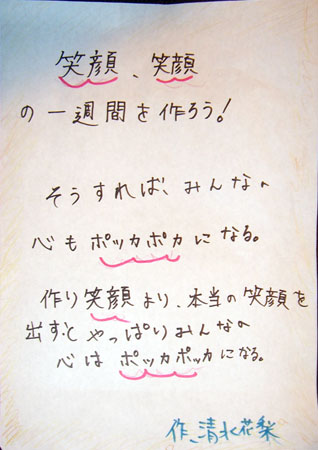 笑顔、笑顔
の一週間を作ろう!
そうすれば、みんなの
心もポッカポカになる。
作り笑顔より、本当の笑顔を
出すとやっぱりみんなの
心はポッカポッカになる。
作、清水花梨